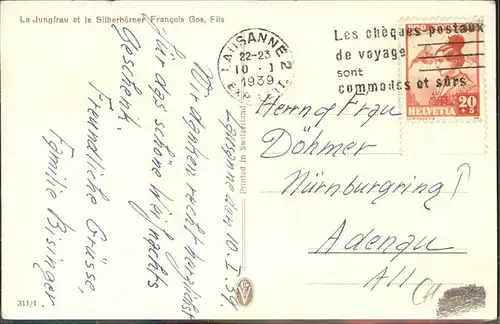 La Jungfrau et le Silberhörner François Gos, Fils
LAUSANNE 2
22-23
10.I
1939
EXP. LETT.
Les chèques postaux
de voyage
sont
commodes et sûrs
20
+5
HELVETIA
Lausanne den 10. I. 39.
Wir danken recht herzlichst
für das schöne Weihnachts
Geschenk.
Freundliche Grüsse,
Familie Bisinger.
Printed in Switzerland
Herrn g Frau
Döhmer
Nürnburgring
Adenau
All
CH
311/4